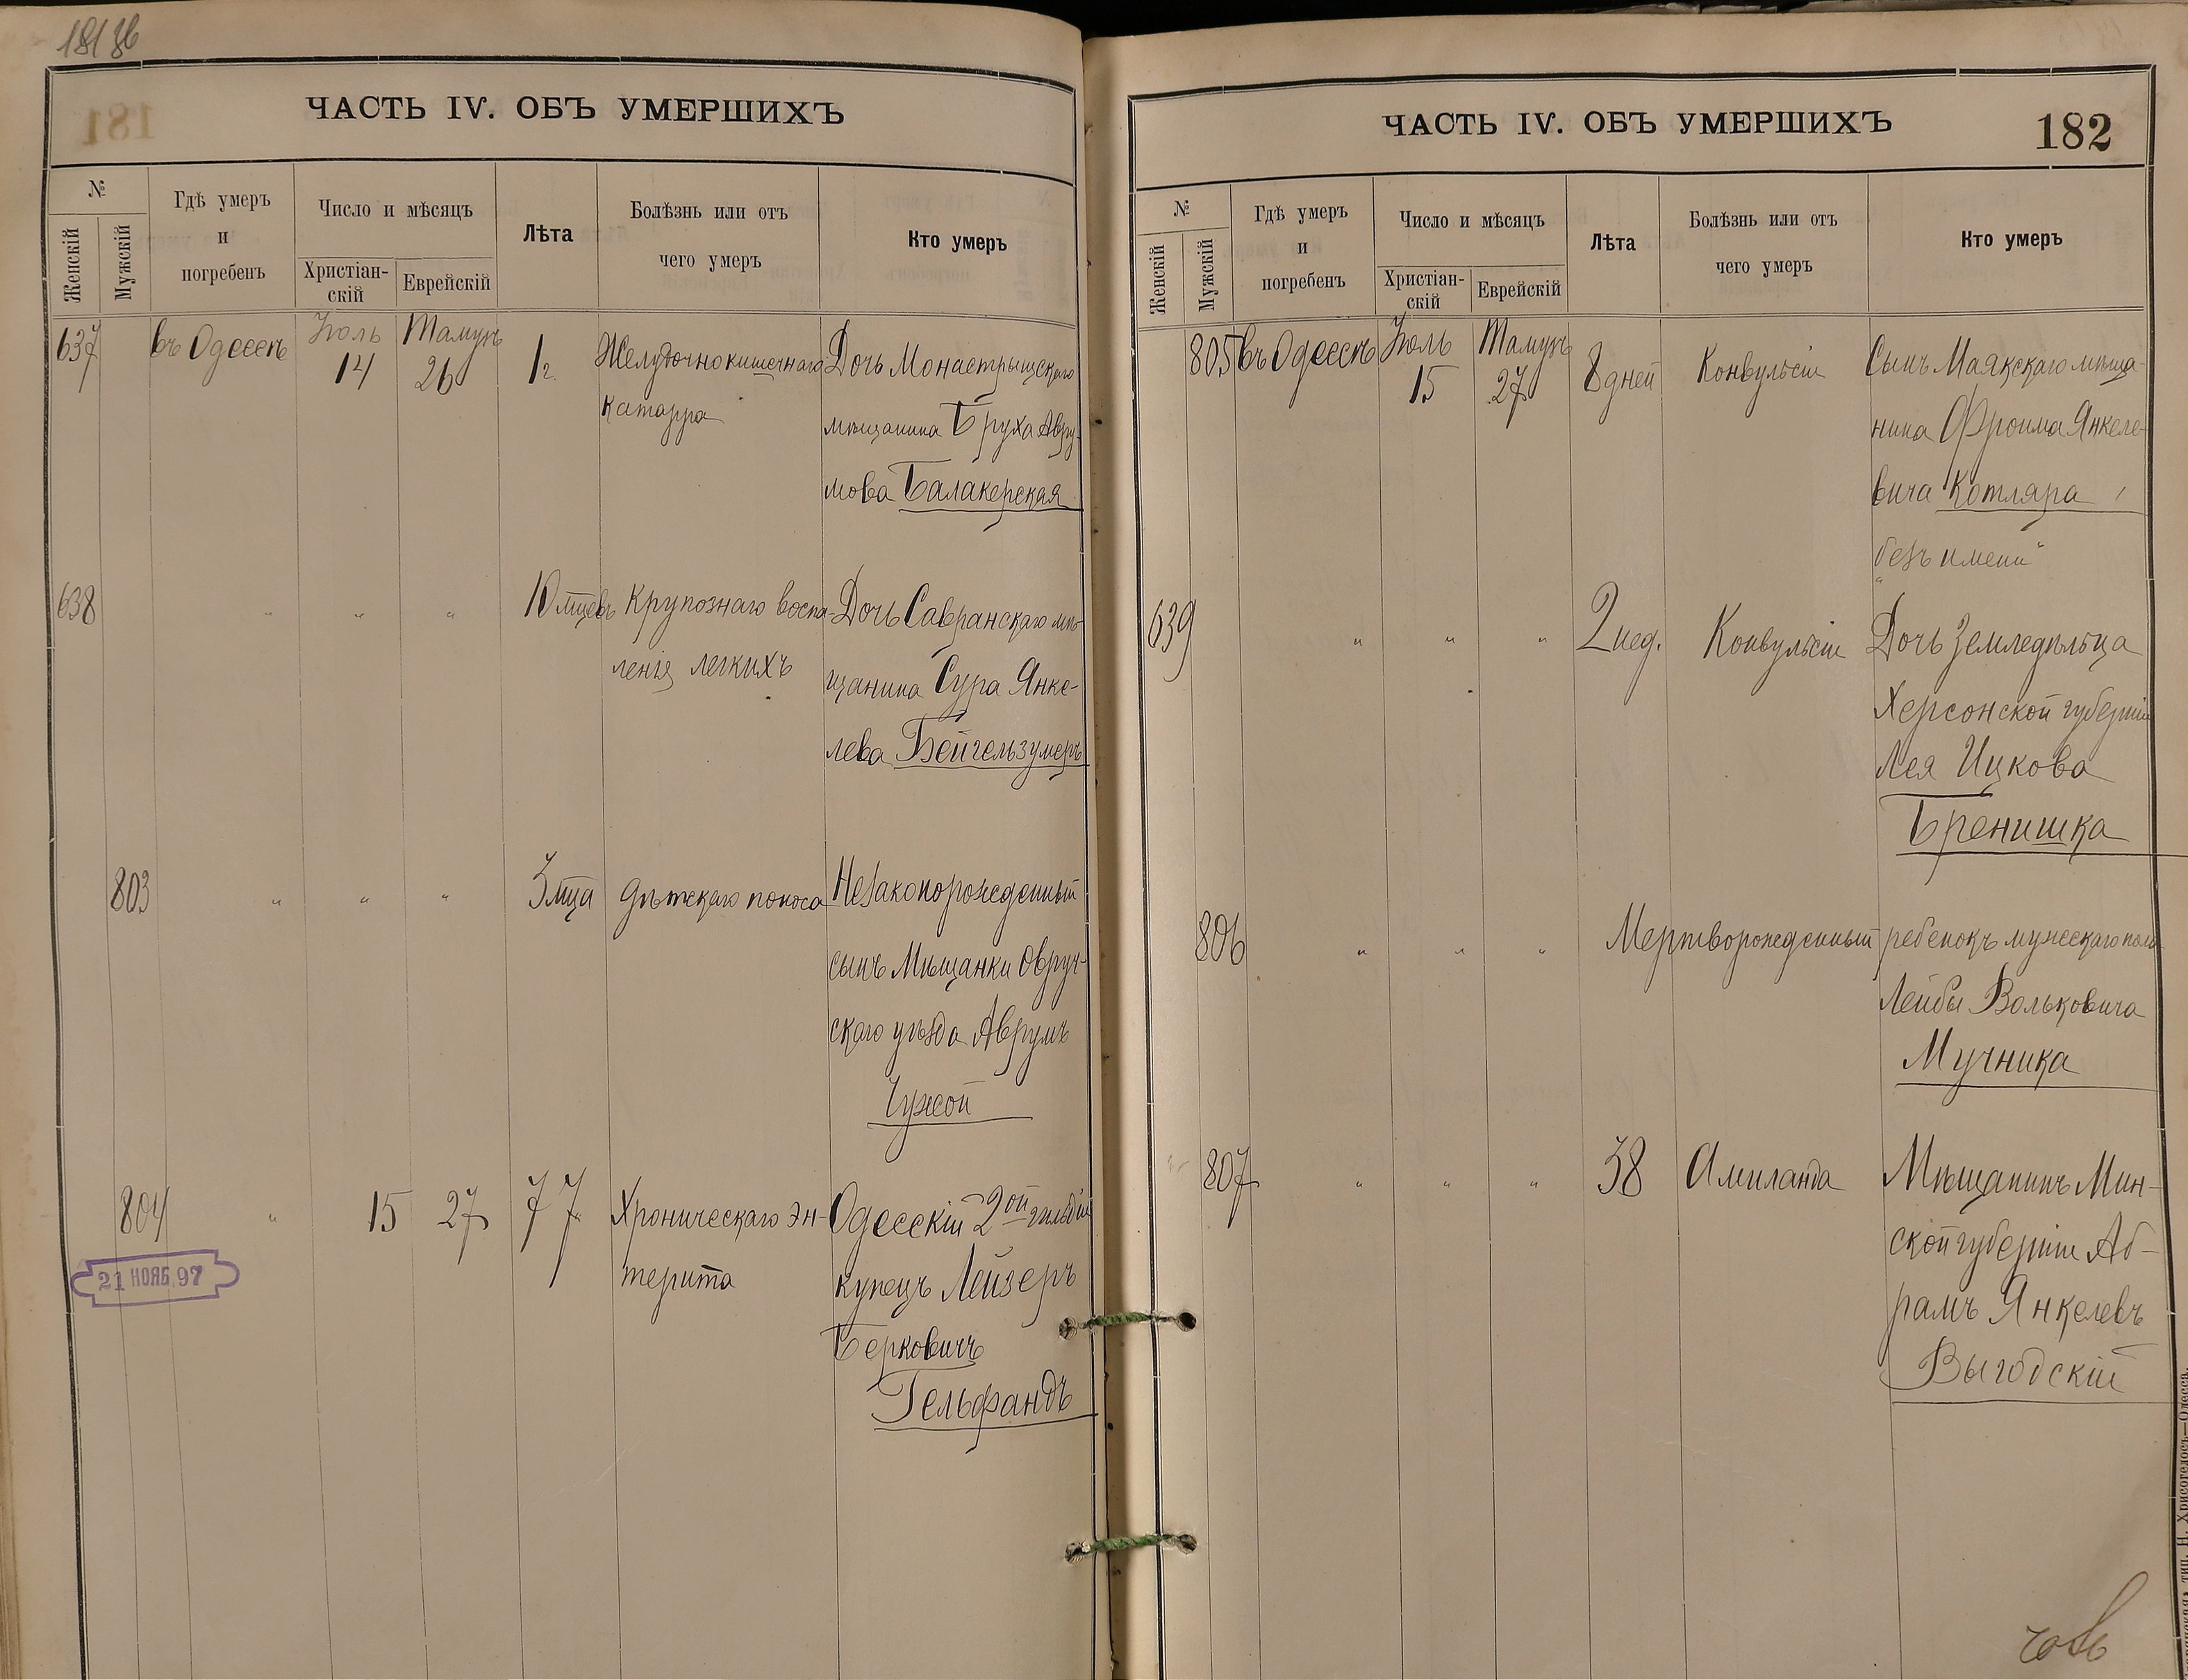 181 зв
ЧАСТЬ IV. ОБЪ УМЕРШИХЪ
№
Женскій
Мужскій
Гдѣ умеръ
и
погребенъ
Число и мѣсяцъ
Христіан-
скій
Еврейскій
Лѣта
Болѣзнь или отъ
чего умеръ
Кто умеръ
637 въ Одессѣ Іюль 14 Тамузъ 26 1 г. Желудочнокишечнаго Дочь Монастрыщскаго
катарра мѣщанина Бруха Авру-
мова Балакерская
638 " " " 10 мцевъ Крупознаго воспа- Дочь Савранскаго мѣ-
ленія легкихъ щанина Сура Янке-
лева Бейгельзумеръ
803 " " " 3 мца Дѣтскаго поноса Незаконорожденный
сынъ Мѣщанки Овруч-
скаго уѣзда Аврумъ
Чужой
804 " 15 27 77 Хроническаго эн- Одесскій 2ой гильдіи
терита купецъ Лейзеръ
Берковичъ
Гельфандъ
21 НОЯБ. 97
ЧАСТЬ IV. ОБЪ УМЕРШИХЪ
182
№
Женскій
Мужскій
Гдѣ умеръ
и
погребенъ
Число и мѣсяцъ
Христіан-
скій
Еврейскій
Лѣта
Болѣзнь или отъ
чего умеръ
Кто умеръ
805 въ Одессѣ Іюль 15 Тамузъ 27 8 дней Конвульсіи Сынъ Маякскаго мѣща-
нина Фроима Янкеле-
вича Котляра
"безъ имени"
639 " " " 2 нед. Конвульсіи Дочь Земледѣльца
Херсонской губерніи
Лея Ицкова
Бренишка
806 " " " Мертворожденный ребенокъ мужескаго пола
Лейбы Вольковича
Мучника
807 " " " 38 Мѣщанинъ Мин-
ской губерніи Аб-
рамъ Янкелевъ
Выгодскій
тип. Н. Хрисогелосъ—Одесса.